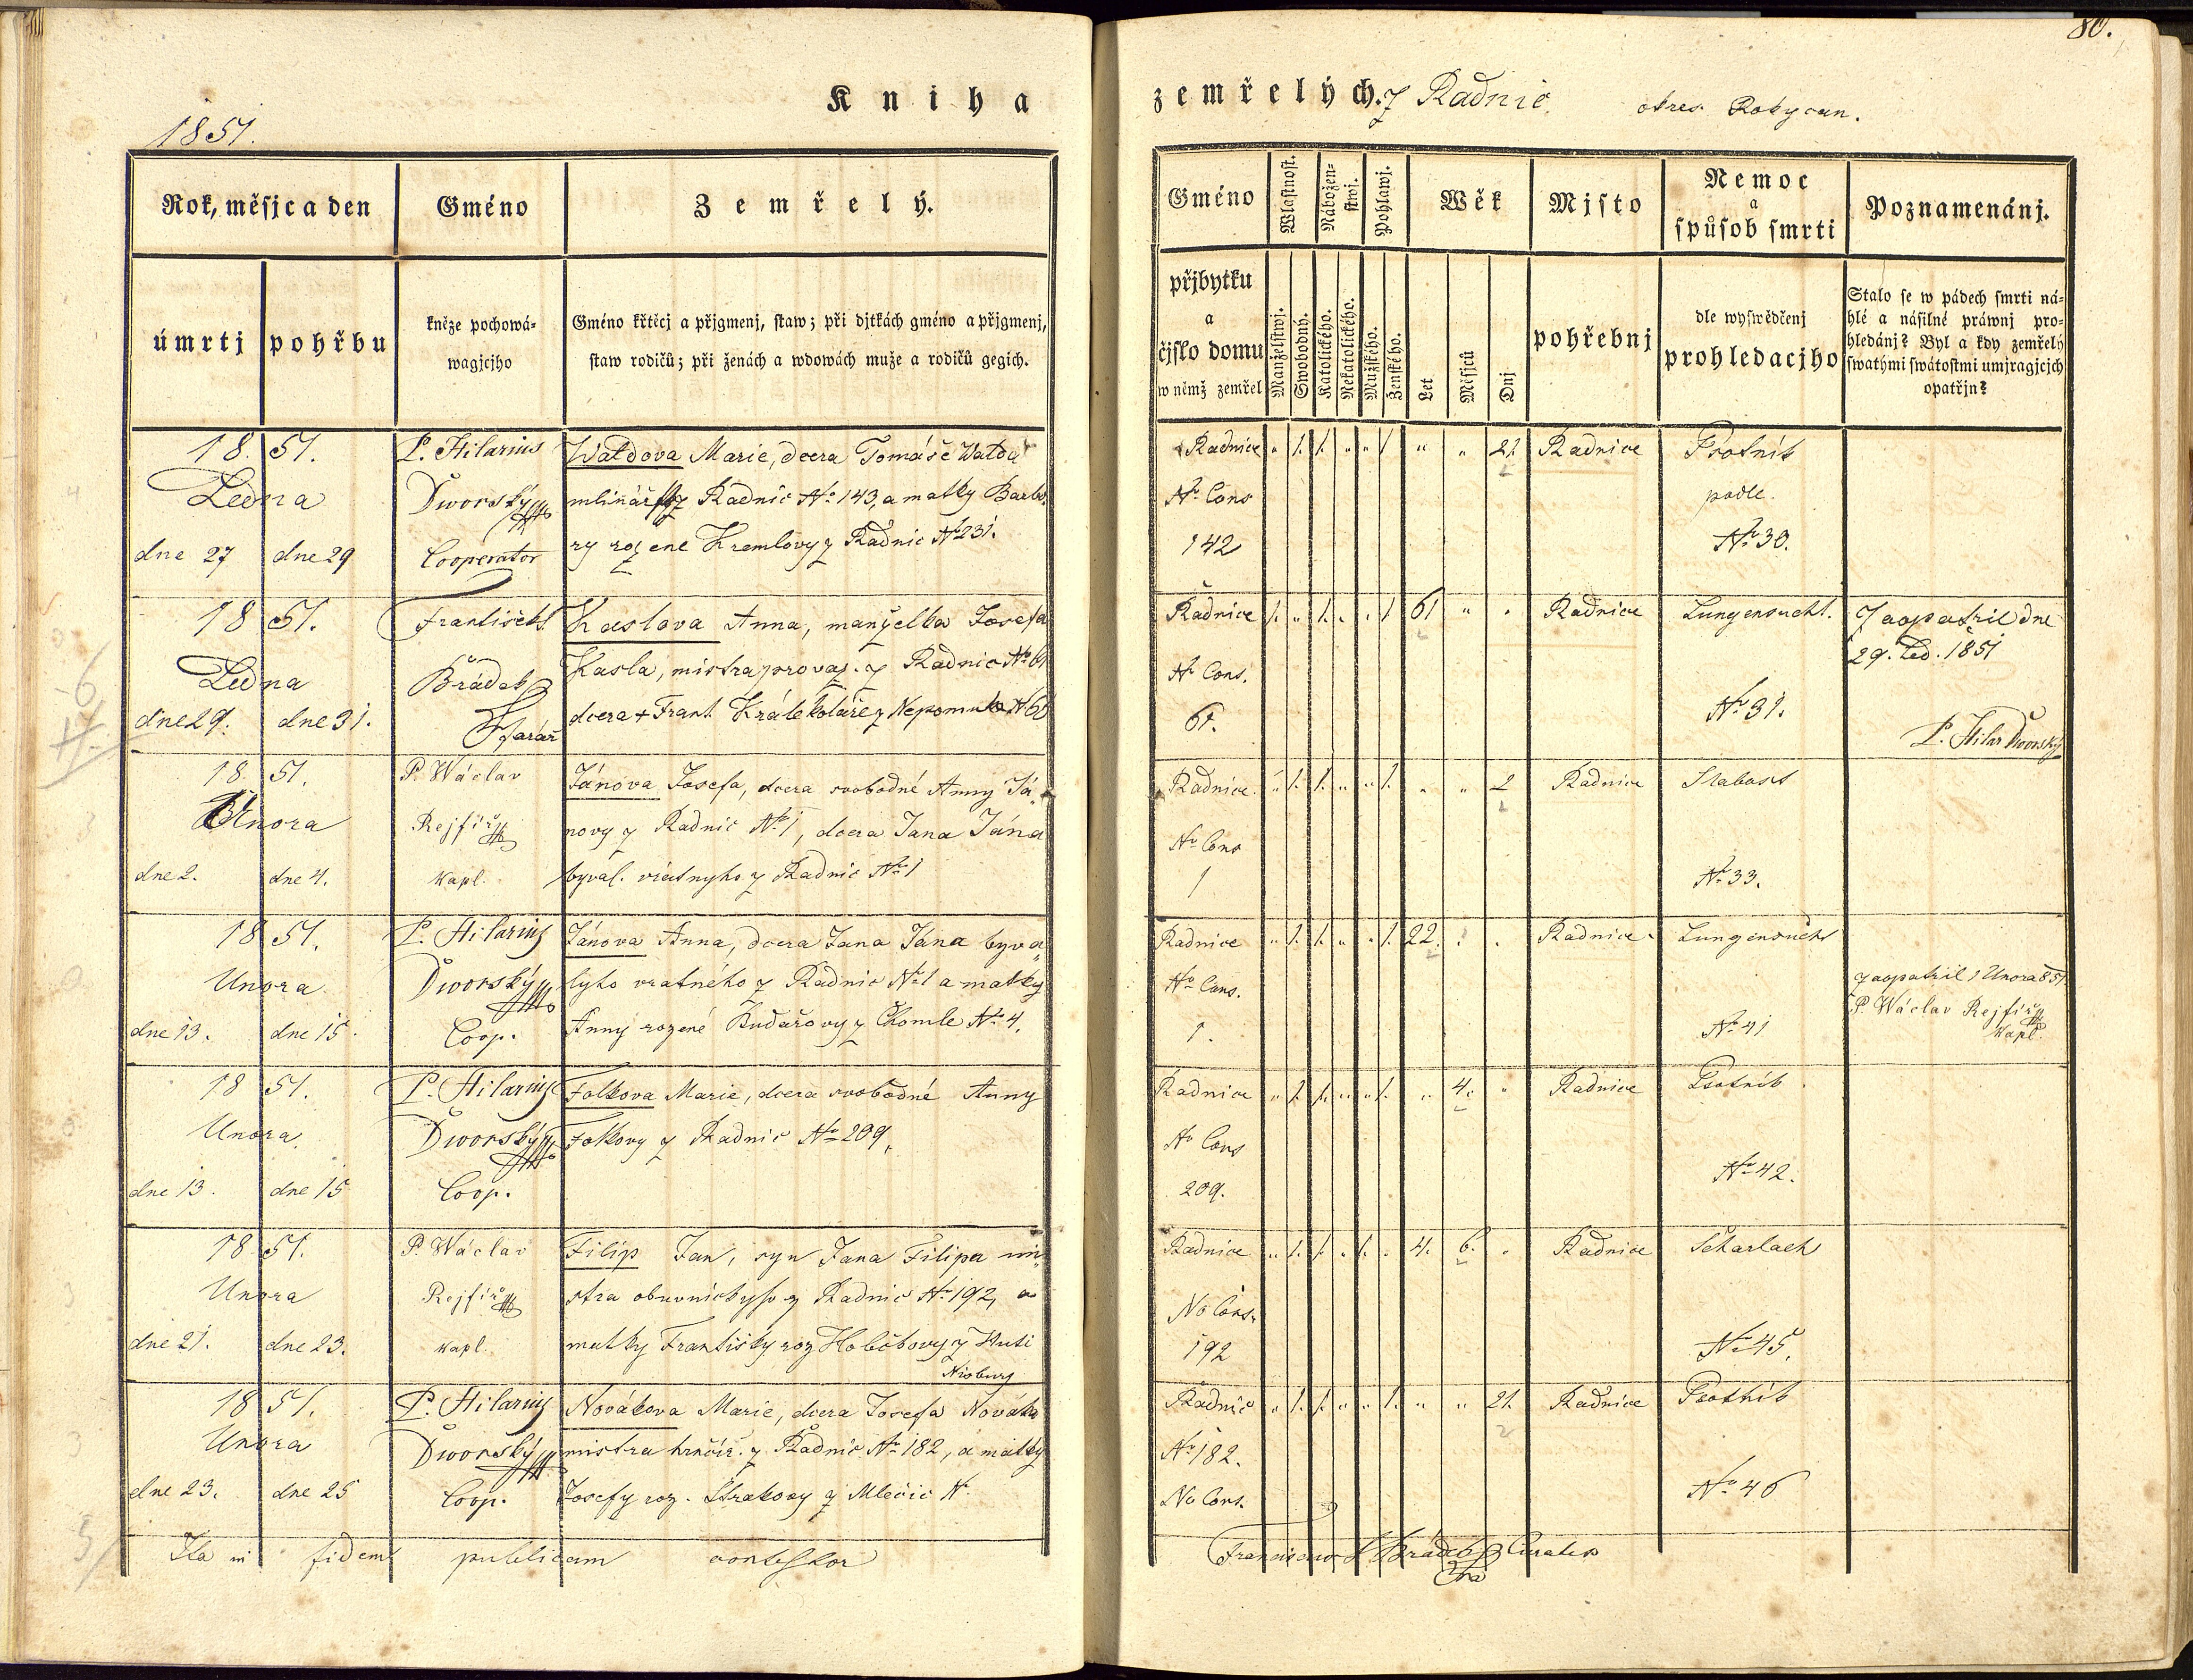 80.
Kniha zemřelých. z Radnic okres Rokycan.
1851.
Rok, měsjc a den
Gméno
Zemřelý.
Gméno
Wlastnost.
Nábožen-
stwj.
Pohlawj.
Wěk
Mjsto
Nemoc
a
spůsob smrti
Poznamenánj.
úmrtj
pohřbu
kněze pochowá-
wagjcjho
Gméno křtěcj a přjgmenj, staw; při djtkách gméno a přjgmenj,
staw rodičů; při ženách a wdowách muže a rodičů gegich.
přjbytku
a
čjslo domu
w němž zemřel
Manželstwj.
Swobodný.
Katolického.
Nekatolického.
Mužského.
Ženského.
Let
Měsjců
Dnj
pohřebnj
dle wyswědčenj
prohledacjho
Stalo se w pádech smrti ná-
hlé a násilné práwnj pro-
hledánj? Byl a kdy zemřelý
swatými swátostmi umjragjcjch
opatřjn?
18 51.
Ledna
dne 27 dne 29
P. Hilarius
Dworský
Cooperator
Watdova Marie, dcera Tomáše Watdy
mlináře z Radnic No 143, a matky Barbo-
ry rozene Kremlovy z Radnic No 231.
Radnice
No Cons
142
" 1. 1. " " 1 " " 21. Radnice
Psotník
podle.
No 30.
18 51.
Ledna
dne 29. dne 31.
František
Brádek
Farář
Kaslova Anna, manželka Josefa
Kasla, mistra provaz. z Radnic No 61
dcera + Frant. Krále koláře z Nepomuka No 60
Radnice
No Cons.
61.
1. " 1. " " 1 61 " " Radnice
Lungensucht.
No 31.
Zaopatřil dne
29. Led. 1851
P. Hilar Dworský
18 51.
Unora
dne 2. dne 4.
P. Wáclav
Rejfíř
kapl.
Jánova Josefa, dcera svobodné Anny Já-
novy z Radnic No 1, dcera Jana Jána
byval. vratnyho z Radnic No 1
Radnice
No Cons
1
" 1. 1. " " 1. " " 2 Radnice
Slabost
No 33.
18 51.
Unora
dne 13. dne 15.
P. Hilarius
Dworský
Coop.
Jánova Anna, dcera Jana Jána byva-
lyho vratného z Radnic No 1 a matky
Anny rozené Kudařovy z Chomle No 4.
Radnice
No Cons.
1.
" 1. 1. " " 1. 22. " " Radnice
Lungensucht
No 41
zaopatřil 1 Unora 851
P. Wáclav Rejfíř
kapl.
18 51.
Unora
dne 13. dne 15
P. Hilarius
Dworský
Coop.
Folkova Marie, dcera svobodné Anny
Folkovy z Radnic No 209.
Radnice
No Cons
209.
" 1. 1. " " 1. " 4. " Radnice
Psotník
No 42.
18 51.
Unora
dne 21. dne 23.
P. Wáclav
Rejfíř
kapl.
Filip Jan, syn Jana Filipa mi-
stra obuvnickyho z Radnic No 192, a
matky Františky roz Holečkovy z Huti
Nisburg
Radnice
No Cons.
192
" 1. 1. " 1. " 4. 6. " Radnice
Scharlach
No 45.
18 51.
Unora
dne 23. dne 25
P. Hilarius
Dworský
Coop.
Novákova Marie, dcera Josefa Nováka
mistra hrnčíř. z Radnic No 182, a matky
Josefy roz. Strakovy z Mlečic No
Radnic
No 182.
No Cons.
" 1. 1. " " 1. " " 21. Radnice
Psotník
No 46
Ita in fidem publicam contestor
Franciscus Brádek Curatus